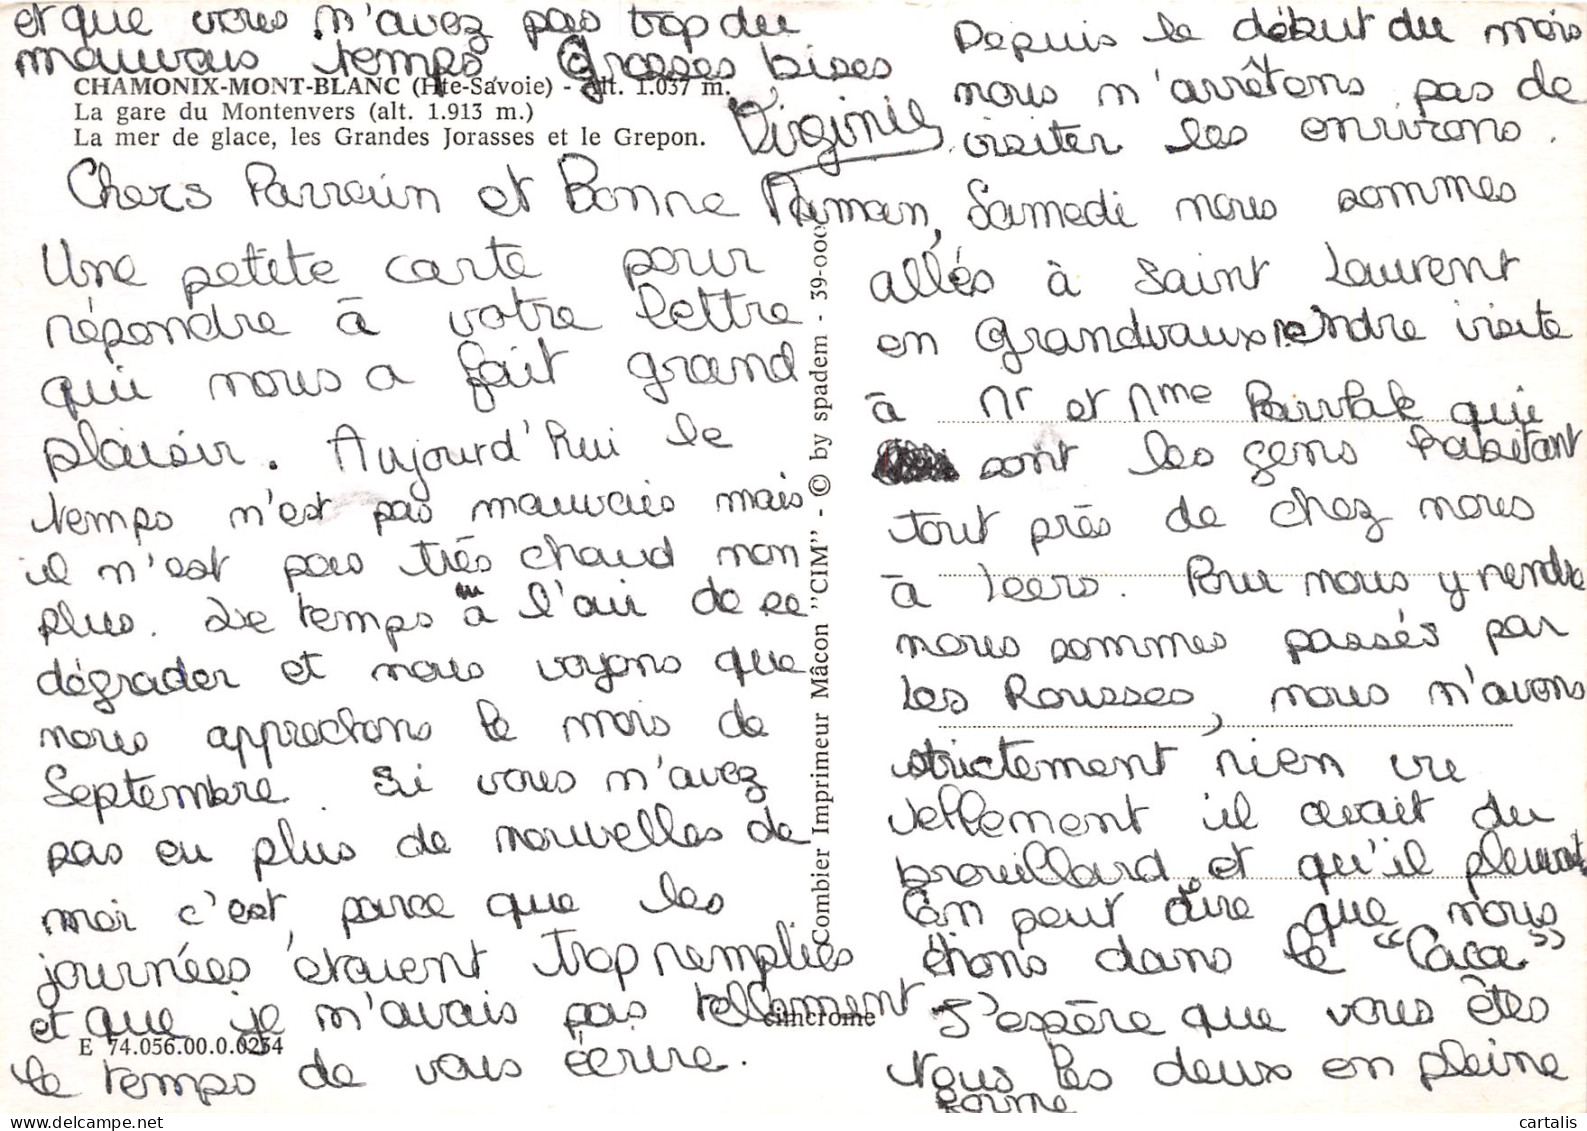 et que vous n'avez pas trop du
mauvais temps. Grosses bises
Virginie
CHAMONIX-MONT-BLANC (Hte-Savoie) - Alt. 1.037 m.
La gare du Montenvers (alt. 1.913 m.)
La mer de glace, les Grandes Jorasses et le Grepon.
Chers Parrain et Bonne Maman,
Une petite carte pour
répondre à votre lettre
qui nous a fait grand
plaisir. Aujourd'hui le
temps n'est pas mauvais mais
il n'est pas très chaud non
plus. Le temps a l'air de se
dégrader et nous voyons que
nous approchons le mois de
Septembre. Si vous n'avez
pas eu plus de nouvelles de
moi c'est parce que les
journées étaient trop remplies
et que je n'avais pas tellement
le temps de vous écrire.
E 74.056.00.0.0234
cimcrome
Combier Imprimeur Mâcon "CIM" - © by spadem - 39-000
Depuis le début du mois
nous n'arrêtons pas de
visiter les environs.
Samedi nous sommes
allés à Saint Laurent
en Grandvaux rendre visite
à Mr et Mme qui
sont les gens habitant
tout près de chez nous
à Leers. Pour nous y rendre
nous sommes passés par
les Rousses, nous n'avons
strictement rien vu
tellement il avait du
brouillard et qu'il pleuvait
On peut dire que nous
étions dans le "Caca"
J'espère que vous êtes
tous les deux en pleine
forme
cartalis